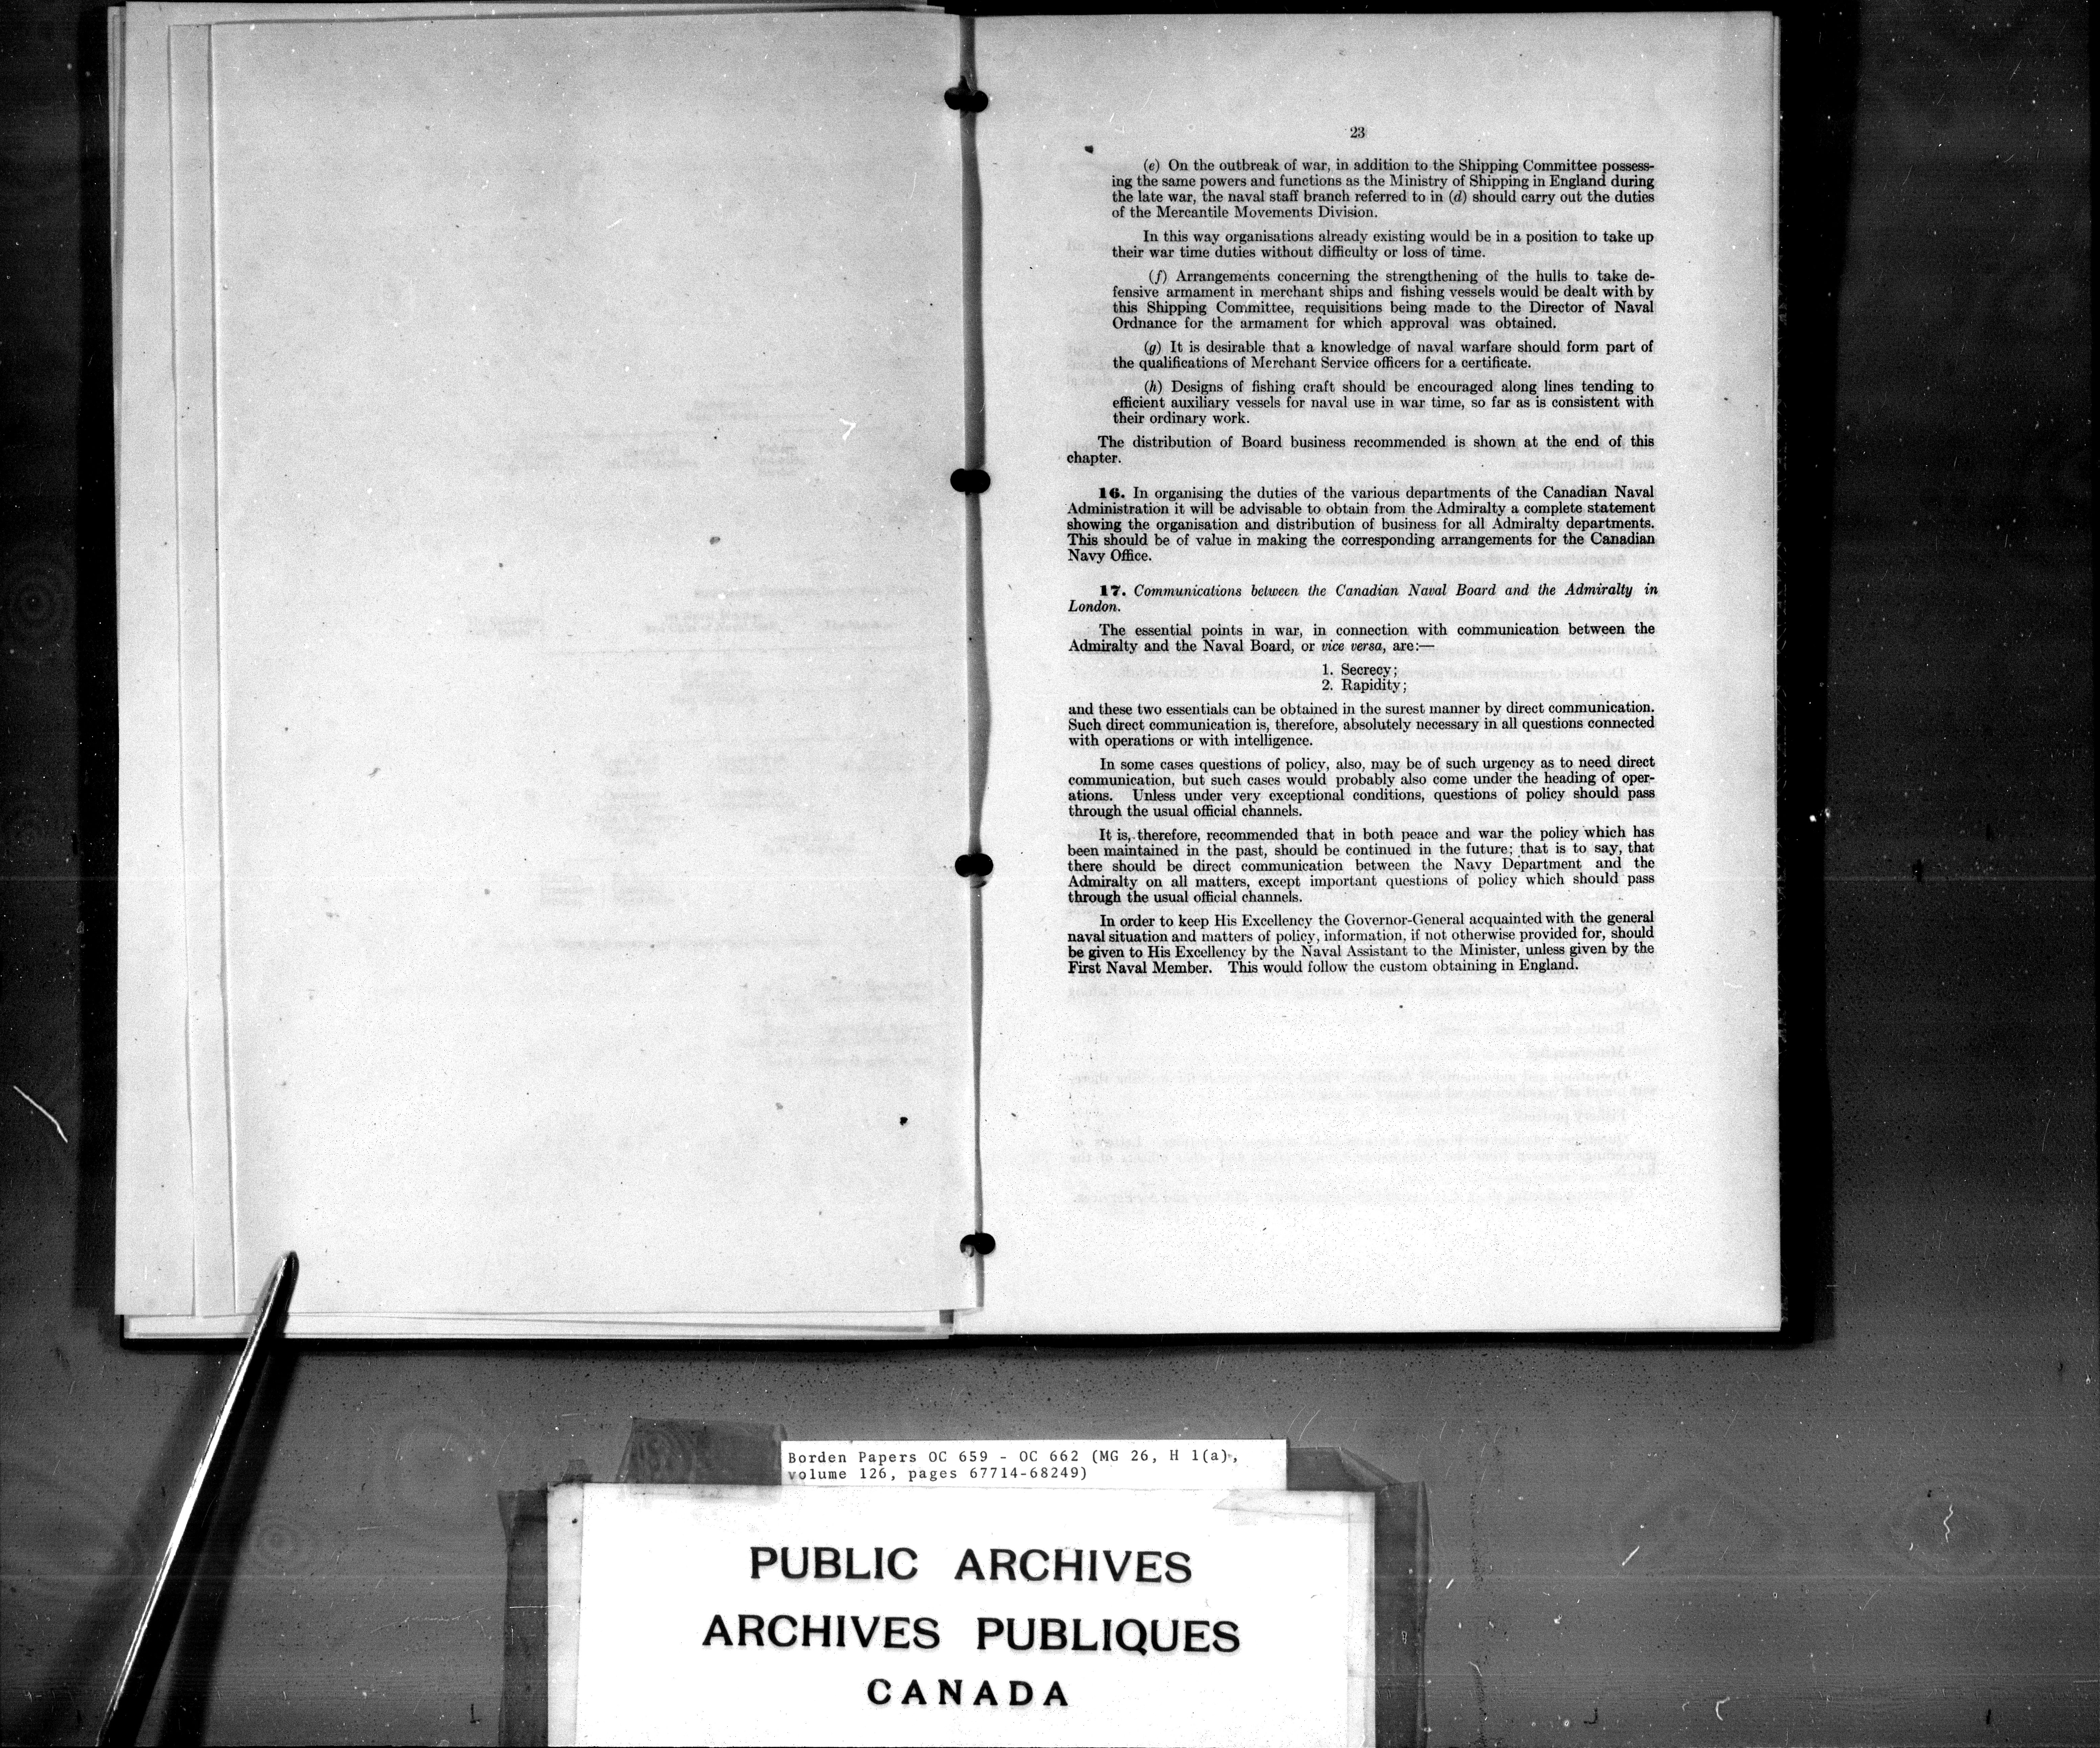 23
(e) On the outbreak of war, in addition to the Shipping Committee possess-
ing the same powers and functions as the Ministry of Shipping in England during
the late war, the naval staff branch referred to in (d) should carry out the duties
of the Mercantile Movements Division.
In this way organisations already existing would be in a position to take up
their war time duties without difficulty or loss of time.
(f) Arrangements concerning the strengthening of the hulls to take de-
fensive armament in merchant ships and fishing vessels would be dealt with by
this Shipping Committee, requisitions being made to the Director of Naval
Ordnance for the armament for which approval was obtained.
(g) It is desirable that a knowledge of naval warfare should form part of
the qualifications of Merchant Service officers for a certificate.
(h) Designs of fishing craft should be encouraged along lines tending to
efficient auxiliary vessels for naval use in war time, so far as is consistent with
their ordinary work.
The distribution of Board business recommended is shown at the end of this
chapter.
16. In organising the duties of the various departments of the Canadian Naval
Administration it will be advisable to obtain from the Admiralty a complete statement
showing the organisation and distribution of business for all Admiralty departments.
This should be of value in making the corresponding arrangements for the Canadian
Navy Office.
17. Communications between the Canadian Naval Board and the Admiralty in
London.
The essential points in war, in connection with communication between the
Admiralty and the Naval Board, or vice versa, are:—
1. Secrecy;
2. Rapidity;
and these two essentials can be obtained in the surest manner by direct communication.
Such direct communication is, therefore, absolutely necessary in all questions connected
with operations or with intelligence.
In some cases questions of policy, also, may be of such urgency as to need direct
communication, but such cases would probably also come under the heading of oper-
ations. Unless under very exceptional conditions, questions of policy should pass
through the usual official channels.
It is, therefore, recommended that in both peace and war the policy which has
been maintained in the past, should be continued in the future; that is to say, that
there should be direct communication between the Navy Department and the
Admiralty on all matters, except important questions of policy which should pass
through the usual official channels.
In order to keep His Excellency the Governor-General acquainted with the general
naval situation and matters of policy, information, if not otherwise provided for, should
be given to His Excellency by the Naval Assistant to the Minister, unless given by the
First Naval Member. This would follow the custom obtaining in England.
Borden Papers OC 659 - OC 662 (MG 26, H 1(a),
volume 126, pages 67714-68249)
PUBLIC ARCHIVES
ARCHIVES PUBLIQUES
CANADA